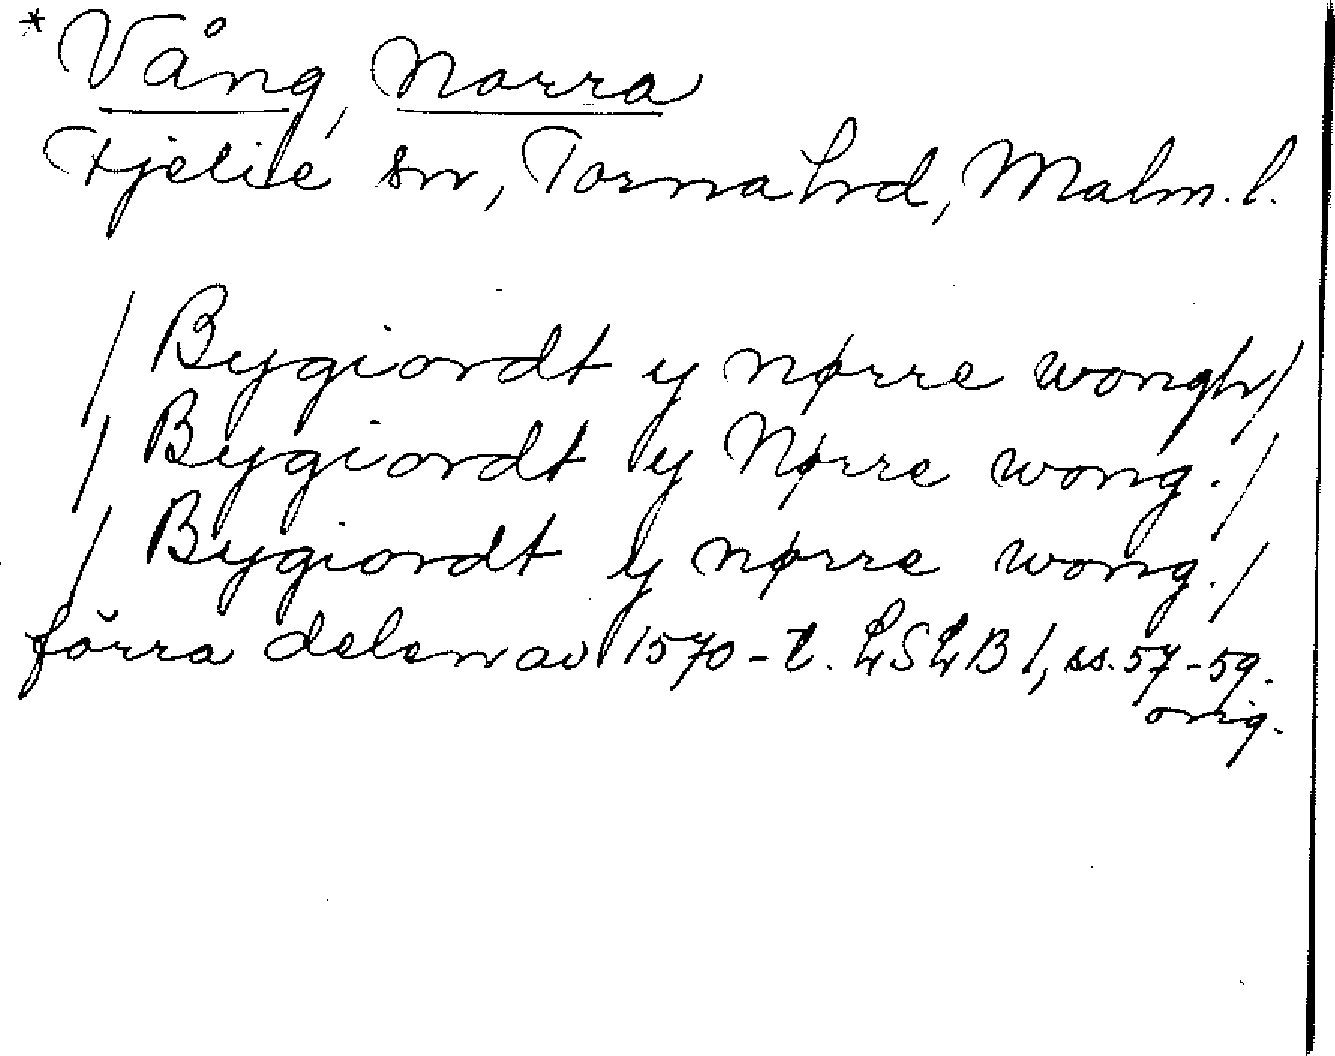 *Vång, Norra
Fjelie sn, Torna hrd, Malm. l.
/ Bygiordt y nørre wongh /
/ Bygiordt y Nørre wong. /
/ Bygiordt y nørre wong. /
förra delen av 1570-t. LSLB 1, ss. 57-59.
orig.